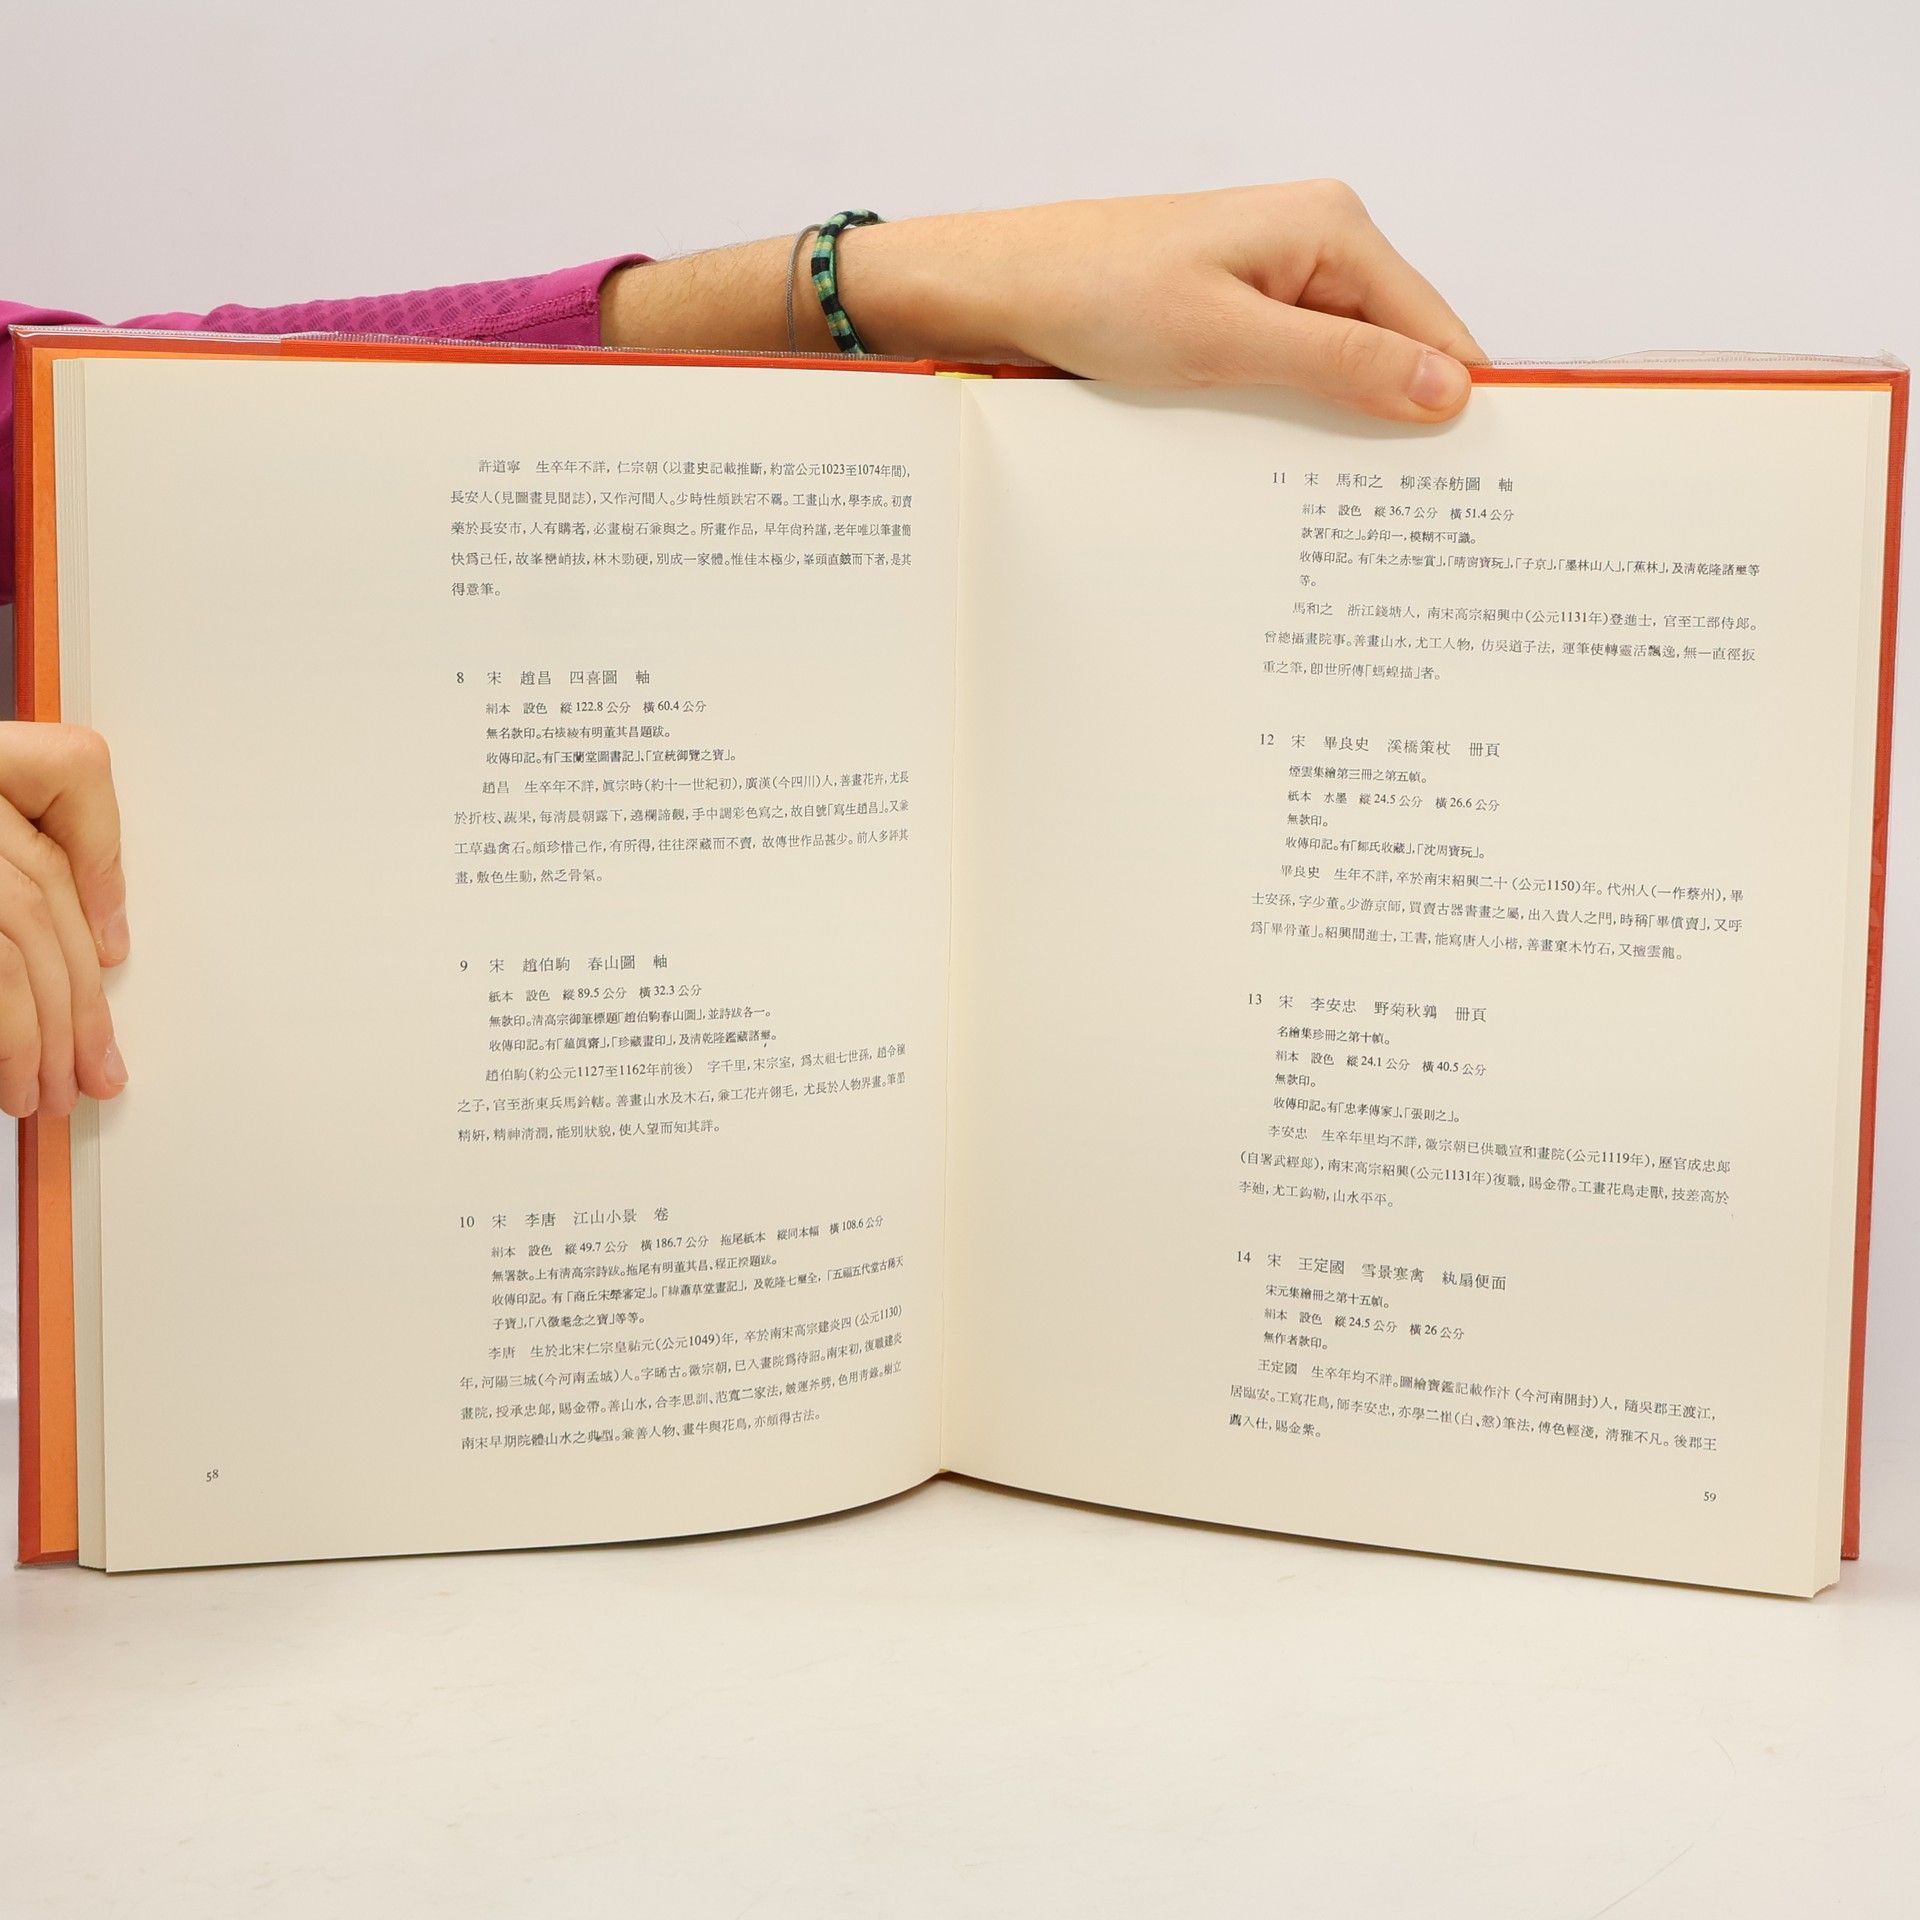 許道寧　生卒年不詳，仁宗朝（以畫史記載推斷，約當公元1023至1074年間），
長安人（見圖畫見聞誌），又作河間人。少時性頗跌宕不羈。工畫山水，學李成。初賣
藥於長安市，人有購者，必畫樹石兼與之。所畫作品，早年尙矜謹，老年唯以筆畫簡
快爲己任，故峯巒峭拔，林木勁硬，別成一家體。惟佳本極少，峯頭直皴而下者，是其
得意筆。
8　宋　趙昌　四喜圖　軸
絹本　設色　縱122.8公分　橫60.4公分
無名款印。右裱綾有明董其昌題跋。
收傳印記。有「玉蘭堂圖書記」、「宣統御覽之寶」。
趙昌　生卒年不詳，眞宗時（約十一世紀初），廣漢（今四川）人，善畫花卉，尤長
於折枝、蔬果，每淸晨朝露下，遶欄諦觀，手中調彩色寫之，故自號「寫生趙昌」。又兼
工草蟲禽石。頗珍惜己作，有所得，往往深藏而不賣，故傳世作品甚少。前人多評其
畫，敷色生動，然乏骨氣。
9　宋　趙伯駒　春山圖　軸
紙本　設色　縱89.5公分　橫32.3公分
無款印。淸高宗御筆標題「趙伯駒春山圖」，並詩跋各一。
收傳印記。有「蘊眞齋」，「珍藏畫印」，及淸乾隆鑑藏諸璽。
趙伯駒（約公元1127至1162年前後）　字千里，宋宗室，爲太祖七世孫，趙令穰
之子，官至浙東兵馬鈐轄。善畫山水及木石，兼工花卉翎毛，尤長於人物界畫。筆墨
精妍，精神淸潤，能別狀貌，使人望而知其詳。
10　宋　李唐　江山小景　卷
絹本　設色　縱49.7公分　橫186.7公分　拖尾紙本　縱同本幅　橫108.6公分
無署款。上有淸高宗詩跋。拖尾有明董其昌、程正揆題跋。
收傳印記。有「商丘宋犖審定」。「緯蕭草堂畫記」，及乾隆七璽全，「五福五代堂古稀天
子寶」，「八徵耄念之寶」等等。
李唐　生於北宋仁宗皇祐元（公元1049）年，卒於南宋高宗建炎四（公元1130）
年，河陽三城（今河南孟城）人。字晞古。徽宗朝，已入畫院爲待詔。南宋初，復職建炎
畫院，授承忠郎，賜金帶。善山水，合李思訓、范寬二家法，皴運斧劈，色用靑綠。樹立
南宋早期院體山水之典型。兼善人物、畫牛與花鳥，亦頗得古法。
58
11　宋　馬和之　柳溪春舫圖　軸
絹本　設色　縱36.7公分　橫51.4公分
款署「和之」。鈐印一，模糊不可識。
收傳印記。有「朱之赤鑒賞」，「晴窗寶玩」，「子京」，「墨林山人」，「蕉林」，及淸乾隆諸璽等
等。
馬和之　浙江錢塘人，南宋高宗紹興中（公元1131年）登進士，官至工部侍郎。
曾總攝畫院事。善畫山水，尤工人物，仿吳道子法，運筆使轉靈活飄逸，無一直徑扳
重之筆，卽世所傳「螞蝗描」者。
12　宋　畢良史　溪橋策杖　冊頁
煙雲集繪第三冊之第五幀。
紙本　水墨　縱24.5公分　橫26.6公分
無款印。
收傳印記。有「鄒氏收藏」，「沈周寶玩」。
畢良史　生年不詳，卒於南宋紹興二十（公元1150）年。代州人（一作蔡州），畢
士安孫，字少董。少游京師，買賣古器書畫之屬，出入貴人之門，時稱「畢償賣」，又呼
爲「畢骨董」。紹興間進士，工書，能寫唐人小楷，善畫窠木竹石，又擅雲龍。
13　宋　李安忠　野菊秋鶉　冊頁
名繪集珍冊之第十幀。
絹本　設色　縱24.1公分　橫40.5公分
無款印。
收傳印記。有「忠孝傳家」、「張則之」。
李安忠　生卒年里均不詳，徽宗朝已供職宣和畫院（公元1119年），歷官成忠郎
（自署武經郎），南宋高宗紹興（公元1131年）復職，賜金帶。工畫花鳥走獸，技差高於
李廸，尤工鈎勒，山水平平。
14　宋　王定國　雪景寒禽　紈扇便面
宋元集繪冊之第十五幀。
絹本　設色　縱24.5公分　橫26公分
無作者款印。
王定國　生卒年均不詳。圖繪寶鑑記載作汴（今河南開封）人，隨吳郡王渡江，
居臨安。工寫花鳥，師李安忠，亦學二崔（白、慤）筆法，傅色輕淺，淸雅不凡。後郡王
薦入仕，賜金紫。
59